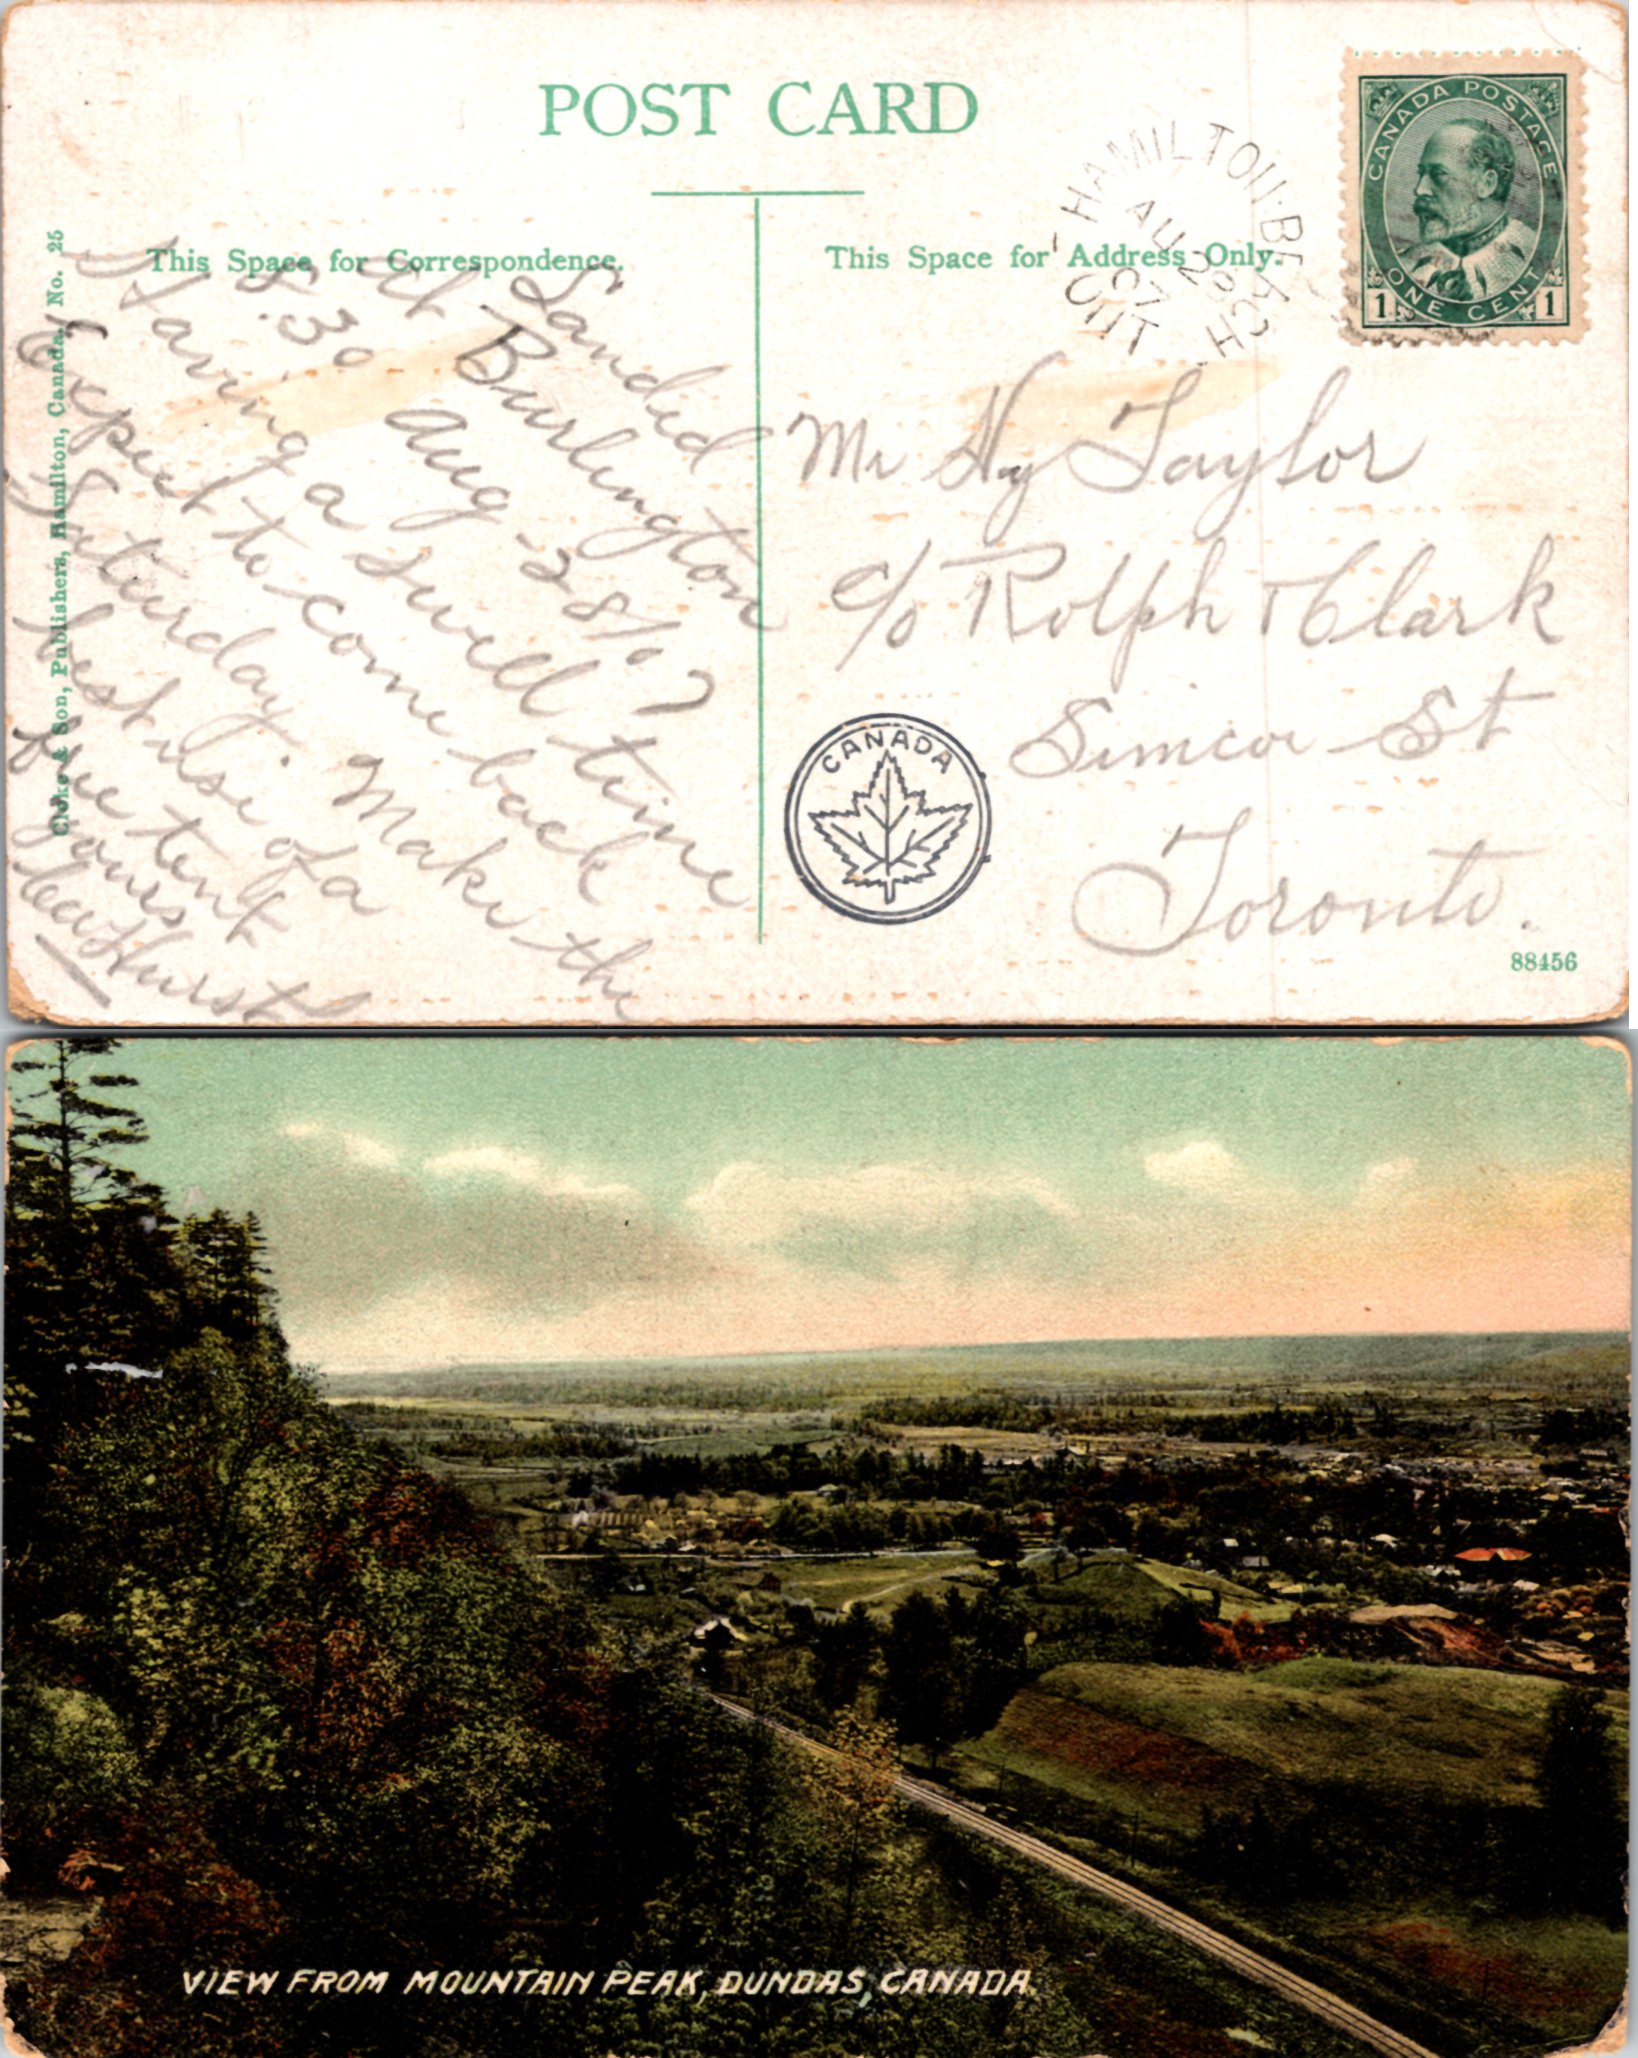 POST CARD
This Space for Correspondence.
This Space for Address Only.
CANADA POSTAGE
ONE CENT
1 1
HAMILTON·BEACH
AU 28
07
ONT
Landed
at Burlington
8.30 Aug-28/07
Having a swell time
Expect to come back
Saturday. Make the
best use of a
fre tent
yours
Hurst
Mr Hy Taylor
c/o Rolph & Clark
Simcoe St
Toronto.
CANADA
88456
Cloke & Son, Publishers, Hamilton, Canada. No. 25
VIEW FROM MOUNTAIN PEAK, DUNDAS, CANADA.